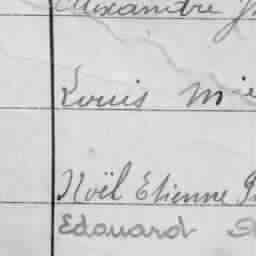 Alexandre
Louis Mie
Noël Etienne
Edouard